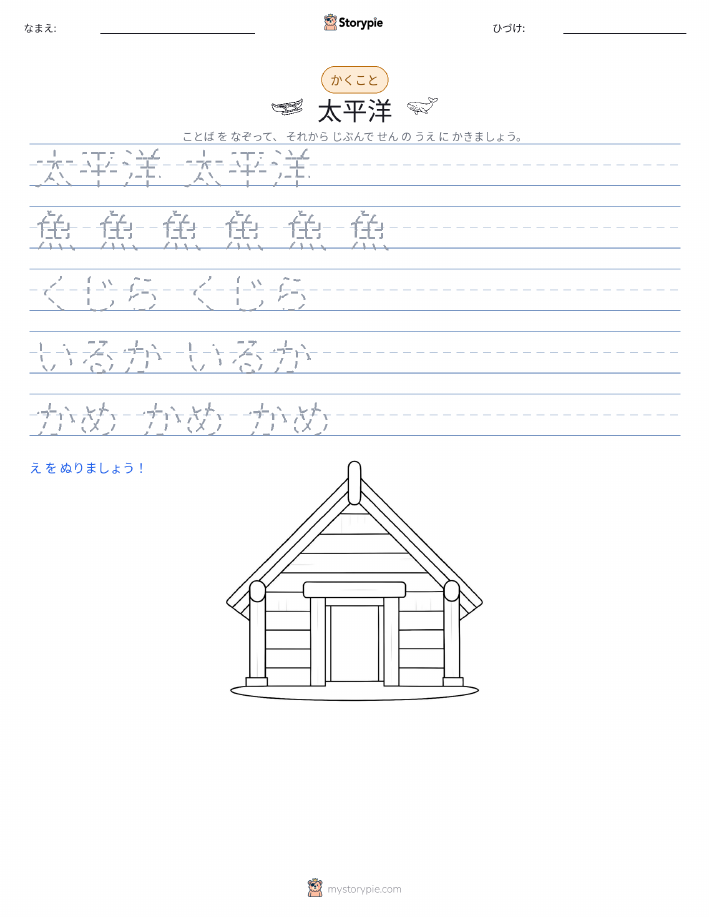 なまえ:
Storypie
ひづけ:
かくこと
太平洋
ことば を なぞって、 それから じぶんで せん の うえ に かきましょう。
太平洋 太平洋
魚 魚 魚 魚 魚 魚
くじら くじら
いるか いるか
かめ かめ かめ
え を ぬりましょう！
mystorypie.com